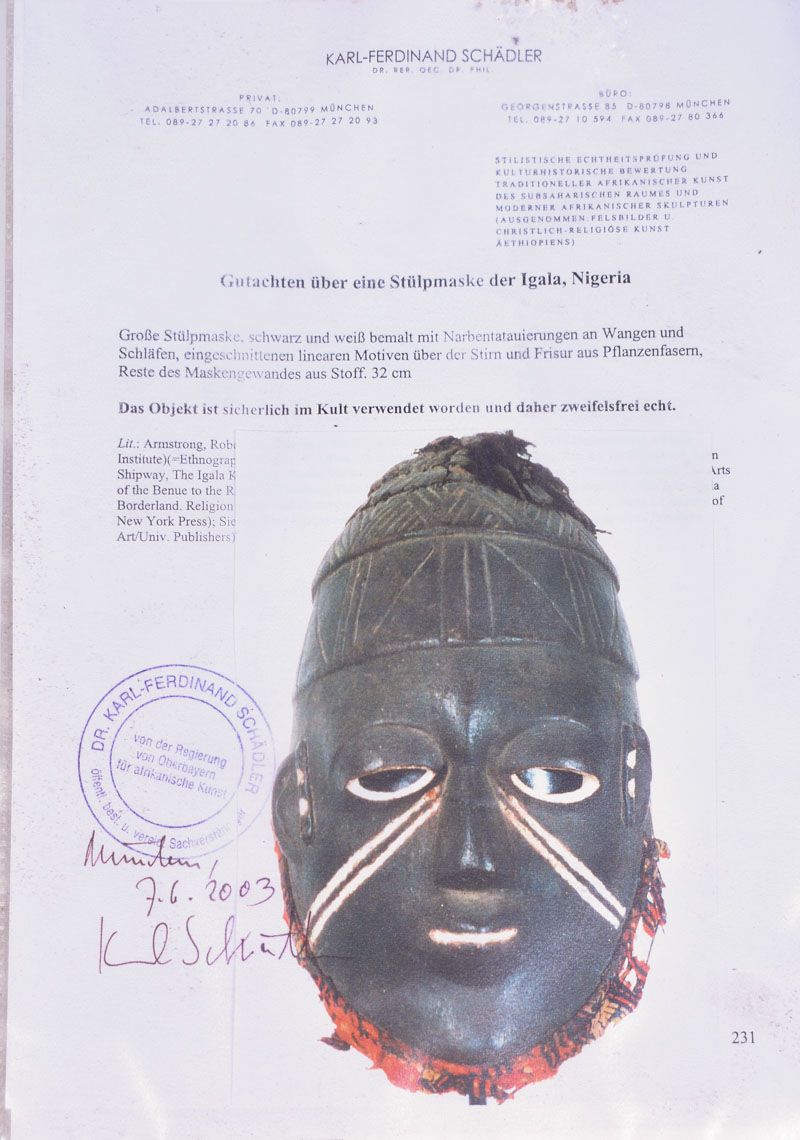 KARL-FERDINAND SCHÄDLER
DR. RER. OEC. DR. PHIL.
PRIVAT:
ADALBERTSTRASSE 70 D-80799 MÜNCHEN
TEL. 089-27 27 20 86 FAX 089-27 27 20 93
BÜRO:
GEORGENSTRASSE 85 D-80798 MÜNCHEN
TEL. 089-27 10 594 FAX 089-27 80 366
STILISTISCHE ECHTHEITSPRÜFUNG UND
KULTURHISTORISCHE BEWERTUNG
TRADITIONELLER AFRIKANISCHER KUNST
DES SUBSAHARISCHEN RAUMES UND
MODERNER AFRIKANISCHER SKULPTUREN
(AUSGENOMMEN FELSBILDER U.
CHRISTLICH-RELIGIÖSE KUNST
ÄETHIOPIENS)
Gutachten über eine Stülpmaske der Igala, Nigeria
Große Stülpmaske, schwarz und weiß bemalt mit Narbentatauierungen an Wangen und
Schläfen, eingeschnittenen linearen Motiven über der Stirn und Frisur aus Pflanzenfasern,
Reste des Maskengewandes aus Stoff. 32 cm
Das Objekt ist sicherlich im Kult verwendet worden und daher zweifelsfrei echt.
Lit.: Armstrong, Robe
Institute)(=Ethnograp n
Shipway, The Igala K Arts
of the Benue to the R a
Borderland. Religion of
New York Press); Sie
Art/Univ. Publishers)
DR. KARL-FERDINAND SCHÄDLER
öffentl. best. u. vereid. Sachverstän
von der Regierung
von Oberbayern
für afrikanische Kunst
München,
7.6.2003
231